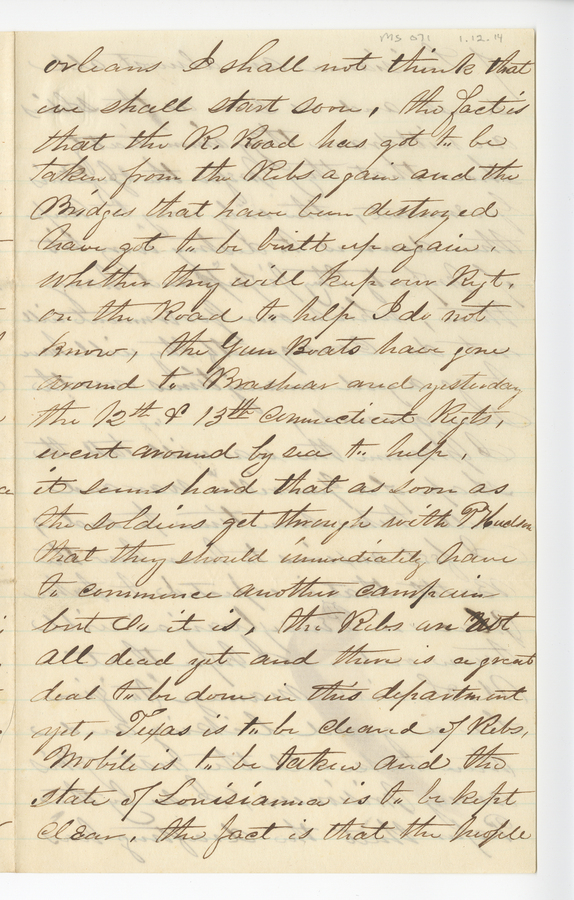 MS 071 1.12.14
orleans I shall not think that
we shall start soon, the fact is
that the R. Road has got to be
taken from the Rebs again and the
Bridges that have been destroyed
have got to be built up again.
whether they will keep our Regt.
on the Road to help I do not
know, the Gun Boats have gone
around to Brashear and yesterday
the 12th & 13th Connecticut Regts,
went around by sea to help,
it seems hard that as soon as
the soldiers get through with P Hudson
that they should immediately have
to commence another campain
but So it is, the Rebs are not
all dead yet and there is a great
deal to be done in this department
yet, Texas is to be cleared of Rebs,
Mobile is to be taken and the
state of Louisianna is to be kept
clear, the fact is that the people